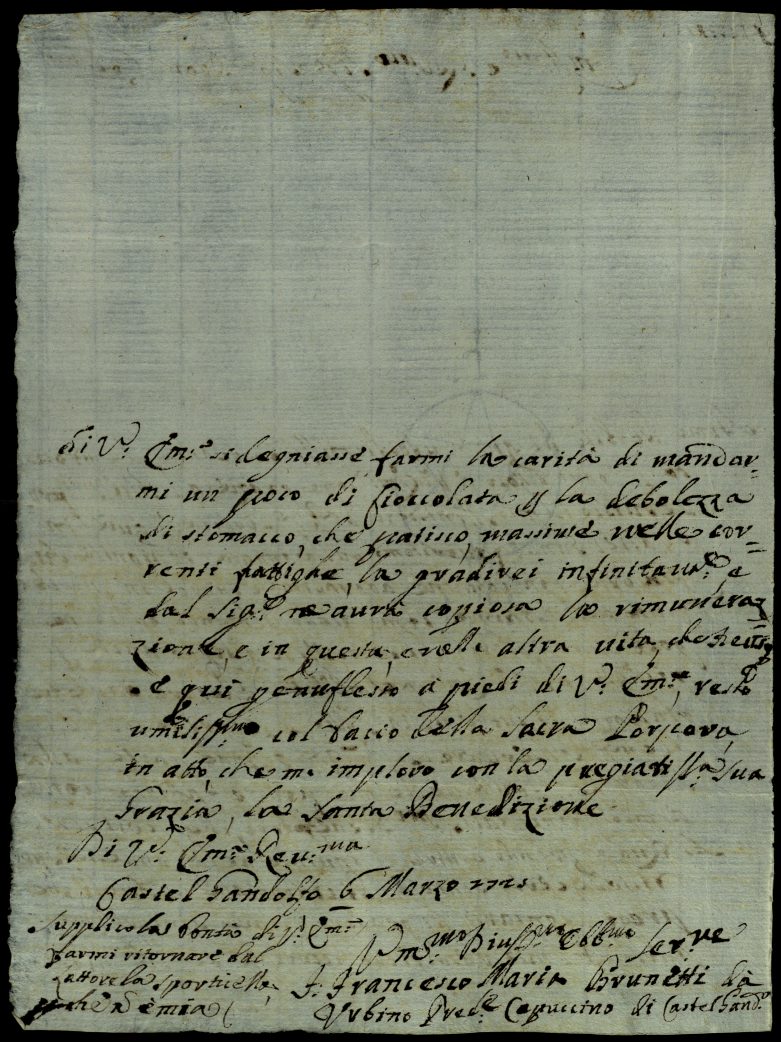 di V. Em.ᵃ si degniasse farmi la carità di mandar=
mi un poco di Cioccolata p la debolezza
di stomacco, che patisco, massime nelle cor=
renti fattighe, la gradirei infinitam.ᵗᵉ, e
dal Sig.ʳ ne aurà copiosa la rimuneraz=
zione, e in questa, e nell' altra uita, che
e qui genuflesso a piedi di V. Em.ᶻᵃ, resto
umiliss.ᵐᵒ col bacio della Sacra Porpora,
in atto, che me imploro con la pregiatiss.ᵃ sua
Grazia, la Santa Benedizione
Di V. Em.ᶻᵃ Reu.ᵐᵃ
Castel Gandolfo 6 Marzo
Supplico la bontà di V. Em.ᶻᵃ
farmi ritornare dal
fattore la sporticella,
che è mia
Um.ᵐᵒ Obb.ᵐᵒ Ser.ᵛᵉ
F. Francesco Maria Brunetti da
Urbino Pred.ʳᵉ Capuccino di Castel Gand.ᵒ